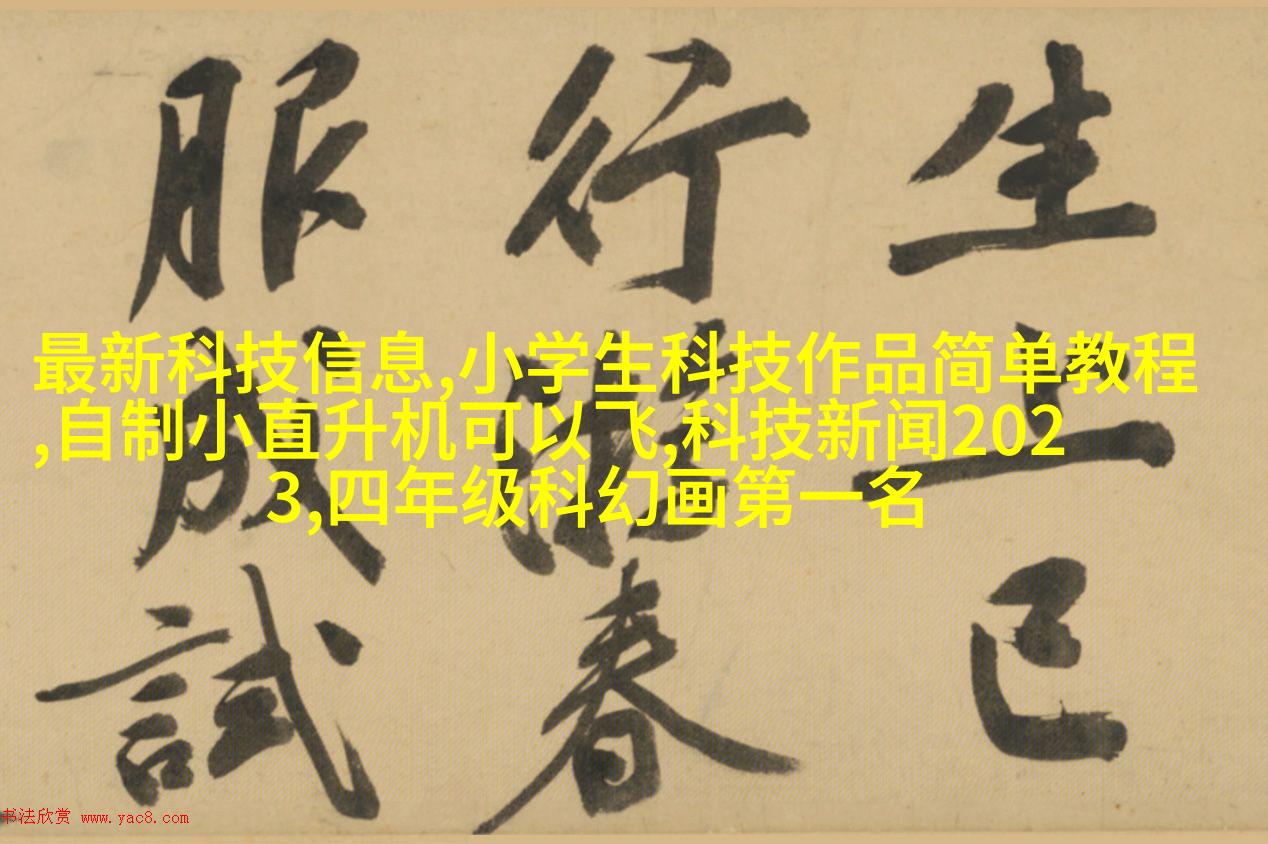 生上巳
行春
服成試
最新科技信息,小学生科技作品简单教程
,自制小直升机可以飞,科技新闻202
3,四年级科幻画第一名
书法欣赏 www.yac8.com